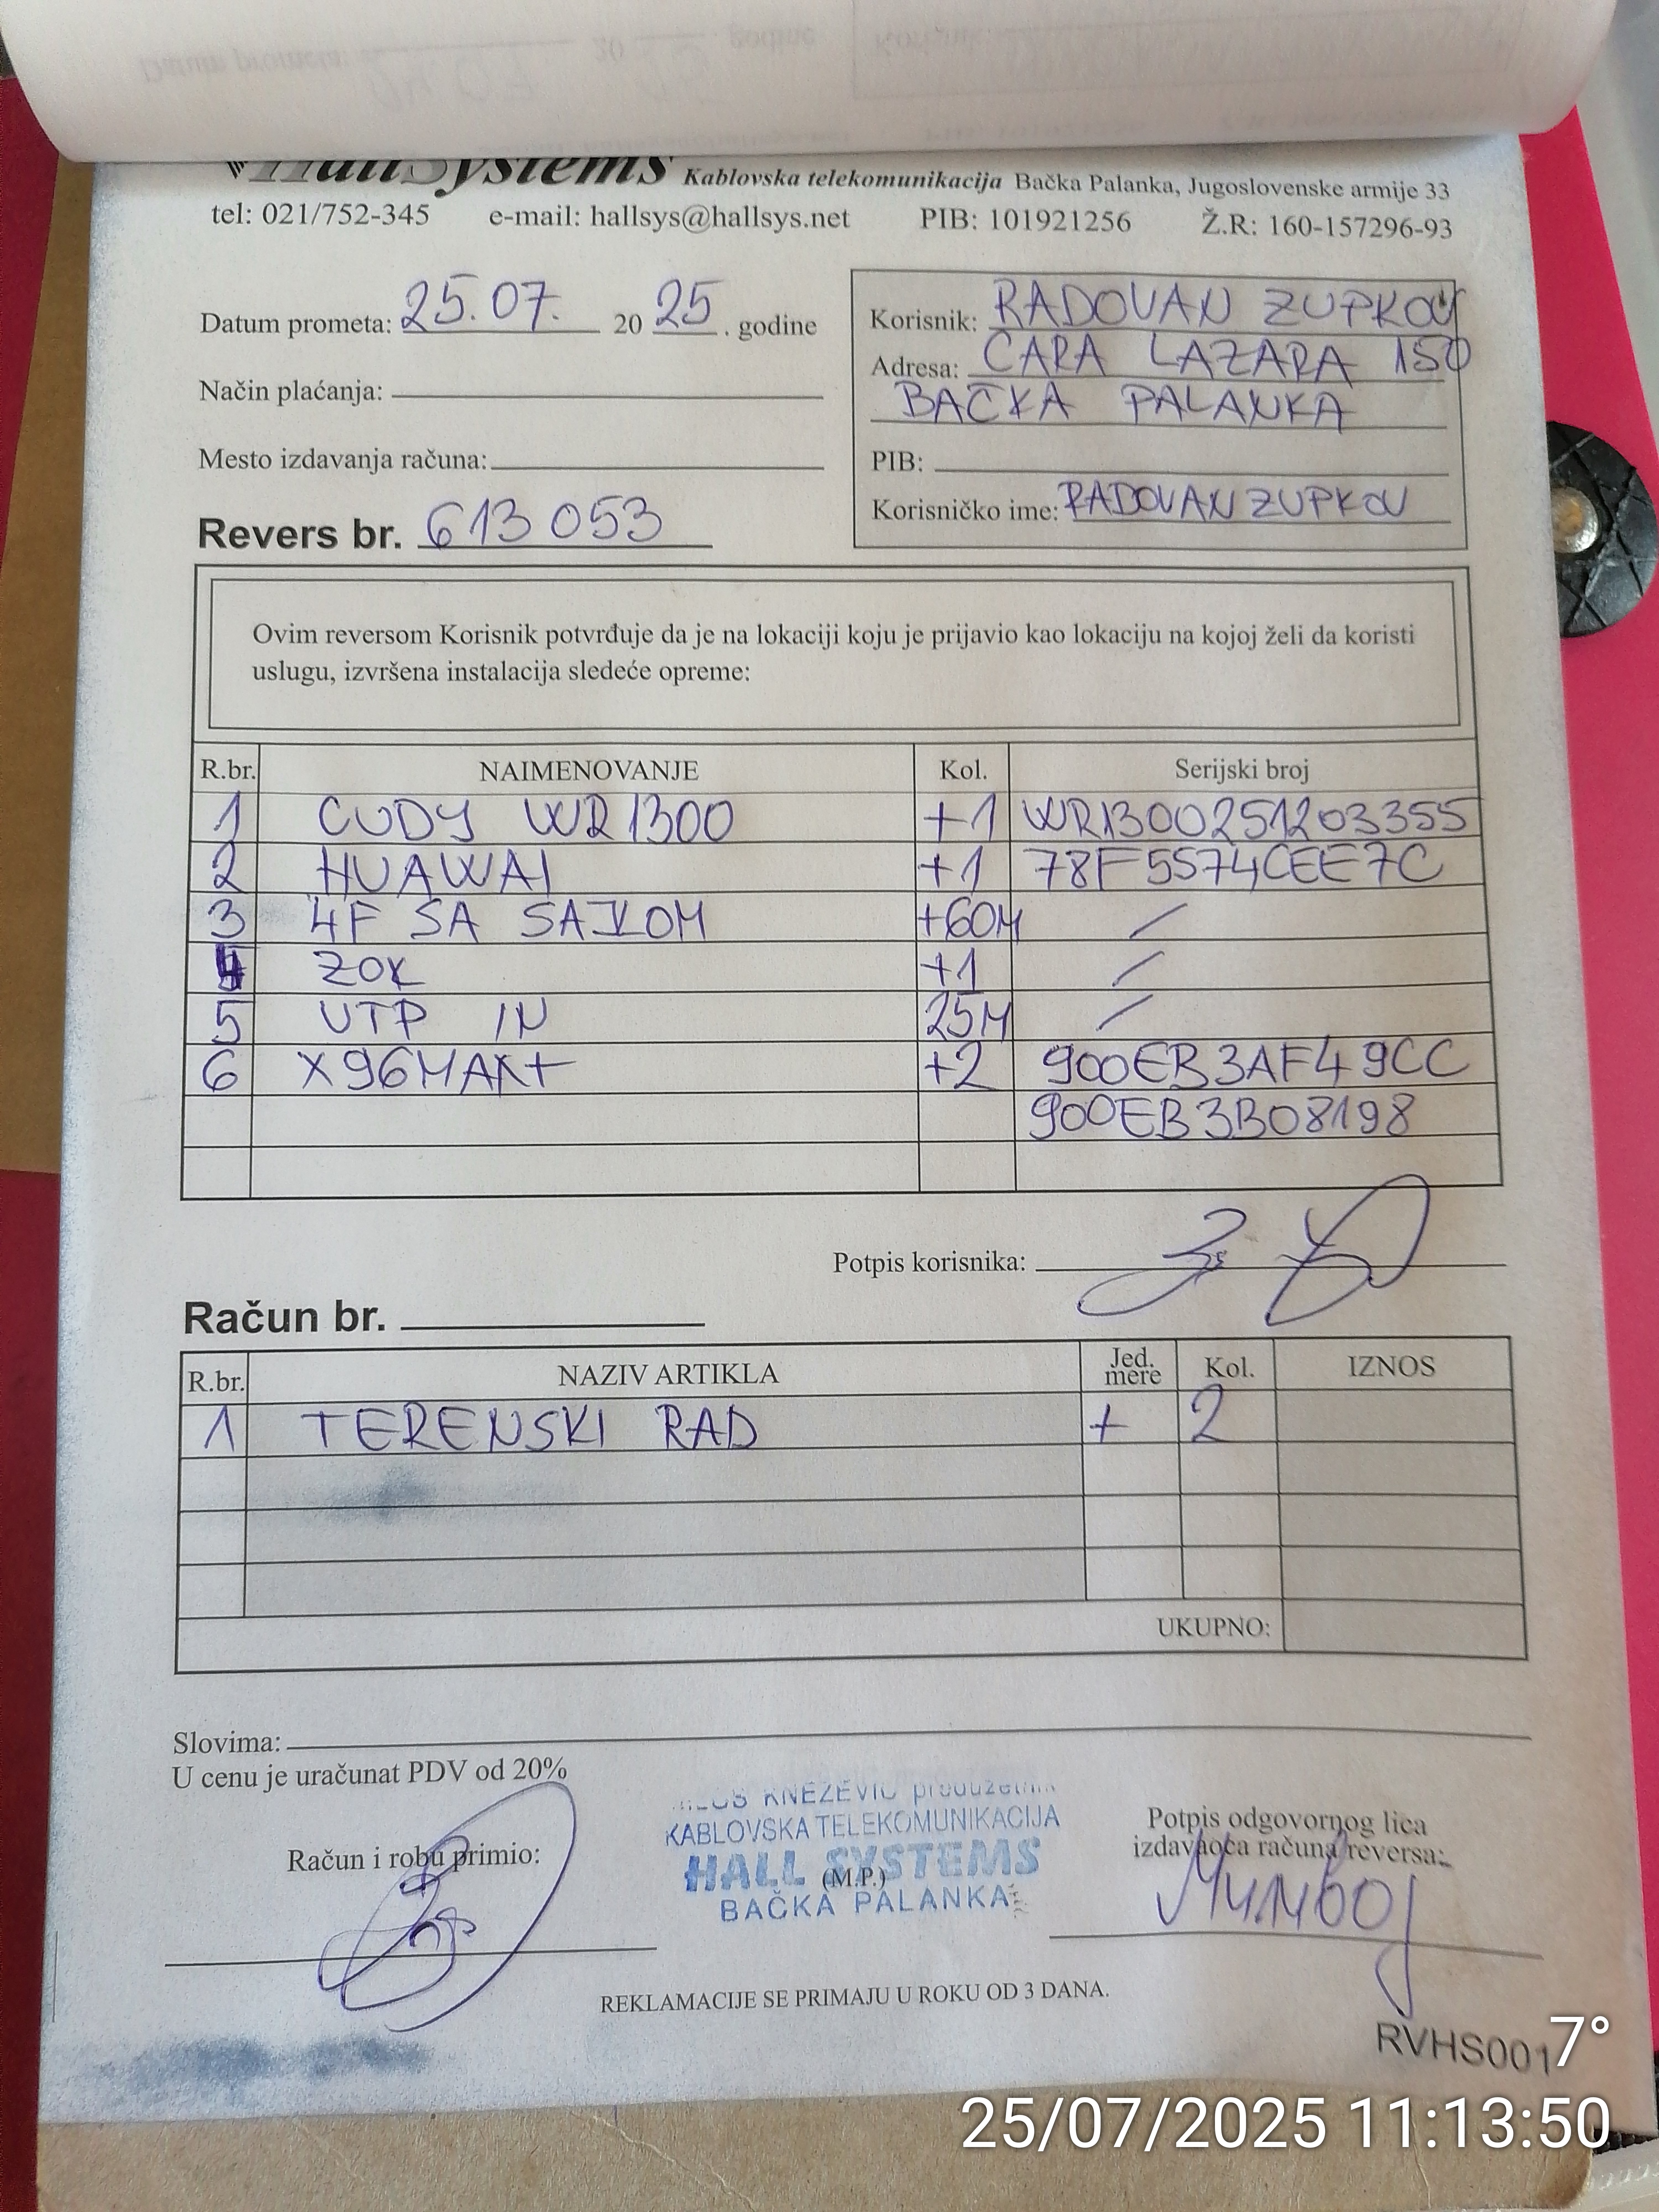 HallSystems Kablovska telekomunikacija Bačka Palanka, Jugoslovenske armije 33
tel: 021/752-345 e-mail: hallsys@hallsys.net PIB: 101921256 Ž.R: 160-157296-93
Datum prometa: 25.07. 20 25 . godine
Način plaćanja:
Mesto izdavanja računa:
Revers br. 613053
Korisnik: RADOVAN ZUPKOV
Adresa: CARA LAZARA 150
BAČKA PALANKA
PIB:
Korisničko ime: RADOVANZUPKOV
Ovim reversom Korisnik potvrđuje da je na lokaciji koju je prijavio kao lokaciju na kojoj želi da koristi
uslugu, izvršena instalacija sledeće opreme:
R.br. NAIMENOVANJE Kol. Serijski broj
1 CUDY WR1300 +1 WR1300251203355
2 HUAWAI +1 78F5574CEE7C
3 4F SA SAJLOM +60M /
4 ZOK +1 /
5 UTP IN 25M /
6 X96MAX+ +2 900EB3AF49CC
900EB3B08198
Potpis korisnika:
Račun br.
R.br. NAZIV ARTIKLA Jed. mere Kol. IZNOS
1 TERENSKI RAD + 2
UKUPNO:
Slovima:
U cenu je uračunat PDV od 20%
Račun i robu primio:
KNEZEVIC
KABLOVSKA TELEKOMUNIKACIJA
HALL SYSTEMS
(M.P.)
BAČKA PALANKA
Potpis odgovornog lica
izdavaoca računa/reversa:
REKLAMACIJE SE PRIMAJU U ROKU OD 3 DANA.
RVHS001
7°
25/07/2025 11:13:50